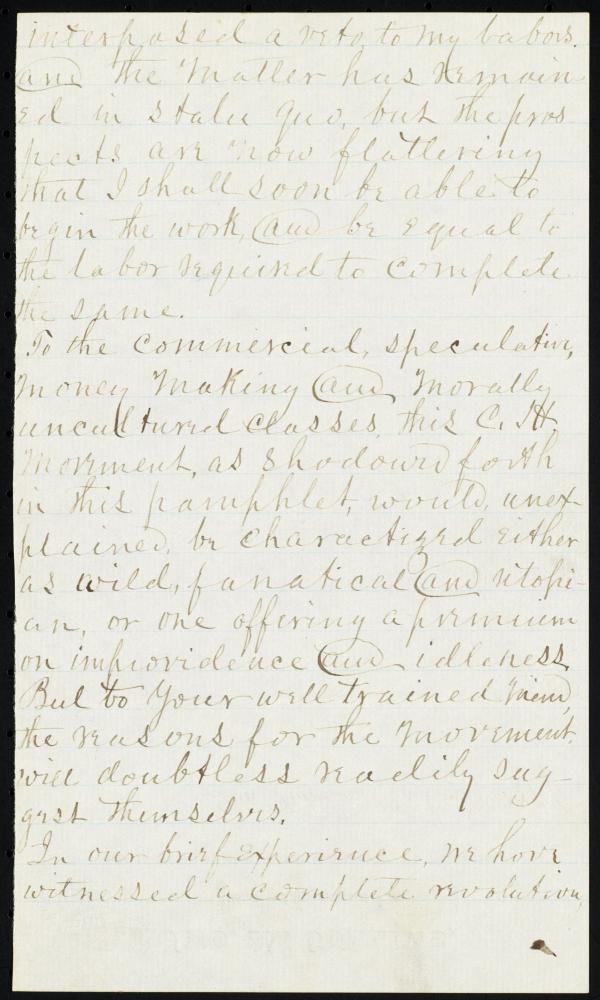 interposed a veto, to my labors.
and the matter has remain-
ed in statu quo, but the pros
pects are now flattering
that I shall soon be able to
begin the work, and be equal to
the labor required to complete
the same.
To the commercial, speculative,
money making and morally
uncultured classes this C. H.
Movement, as shadowed forth
in this pamphlet, would, unex-
plained, be charactized either
as wild, fanatical and utopi-
an, or one offering a premium
on improvidence and idleness.
But to your well trained mind,
the reasons for the movement.
will doubtless readily sug-
gest themselves.
In our brief experience, we have
witnessed a complete revolution,